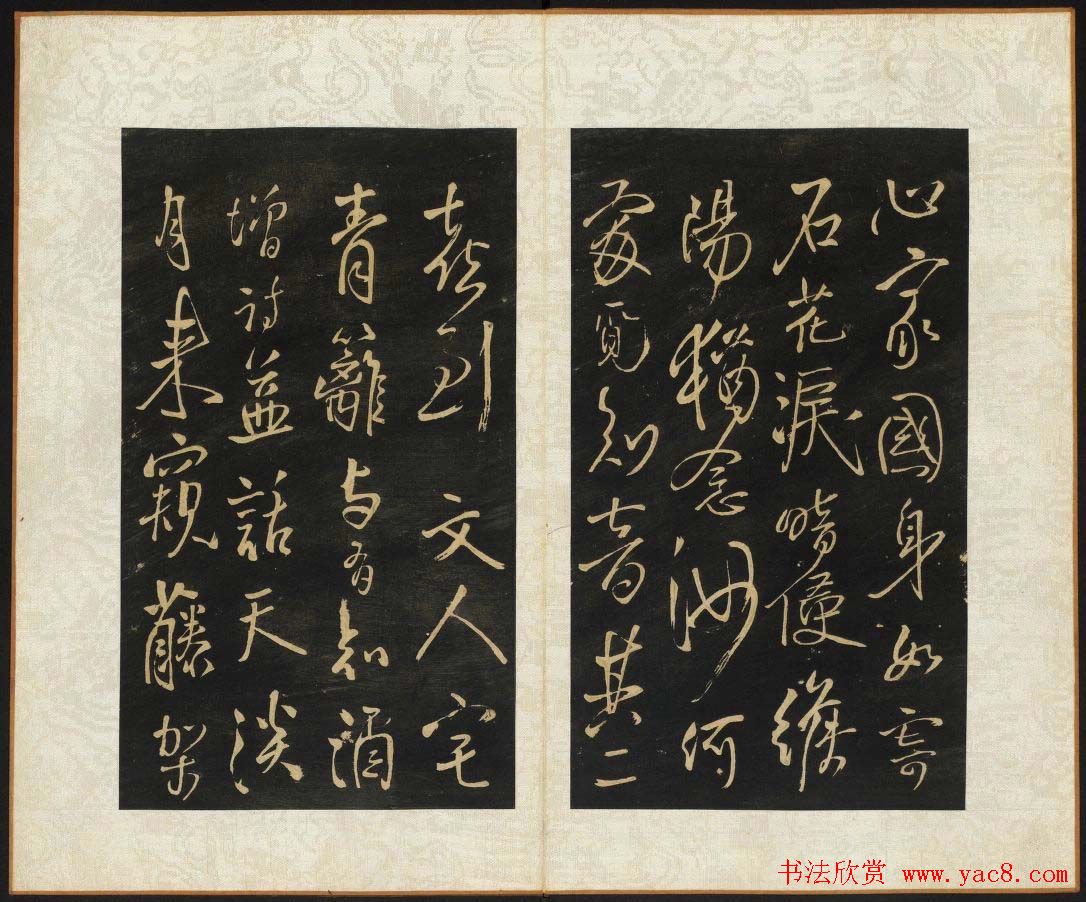 心家國身如寄
石花淚暗侵
陽猶念汝何
處覓知音其二
喜到文人宅
青籬與有知酒
增詩益話天淡
月來窺藤架
书法欣赏 www.yac8.com